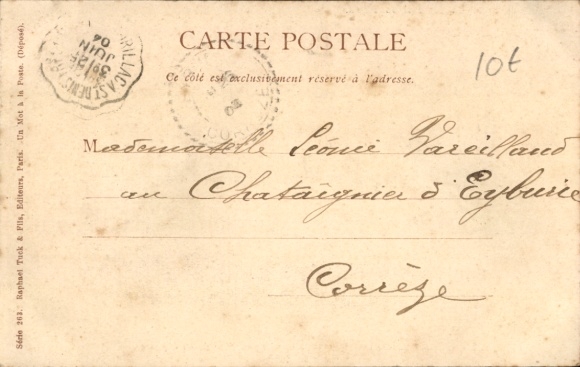 CARTE POSTALE
Ce côté est exclusivement réservé à l'adresse.
10€
Mademoiselle Léonie Vareilland
au Chataignier d'Eyburie
Corrèze
JUIN
04
Série 263. Raphael Tuck & Fils, Editeurs, Paris. Un Mot à la Poste. (Déposé).